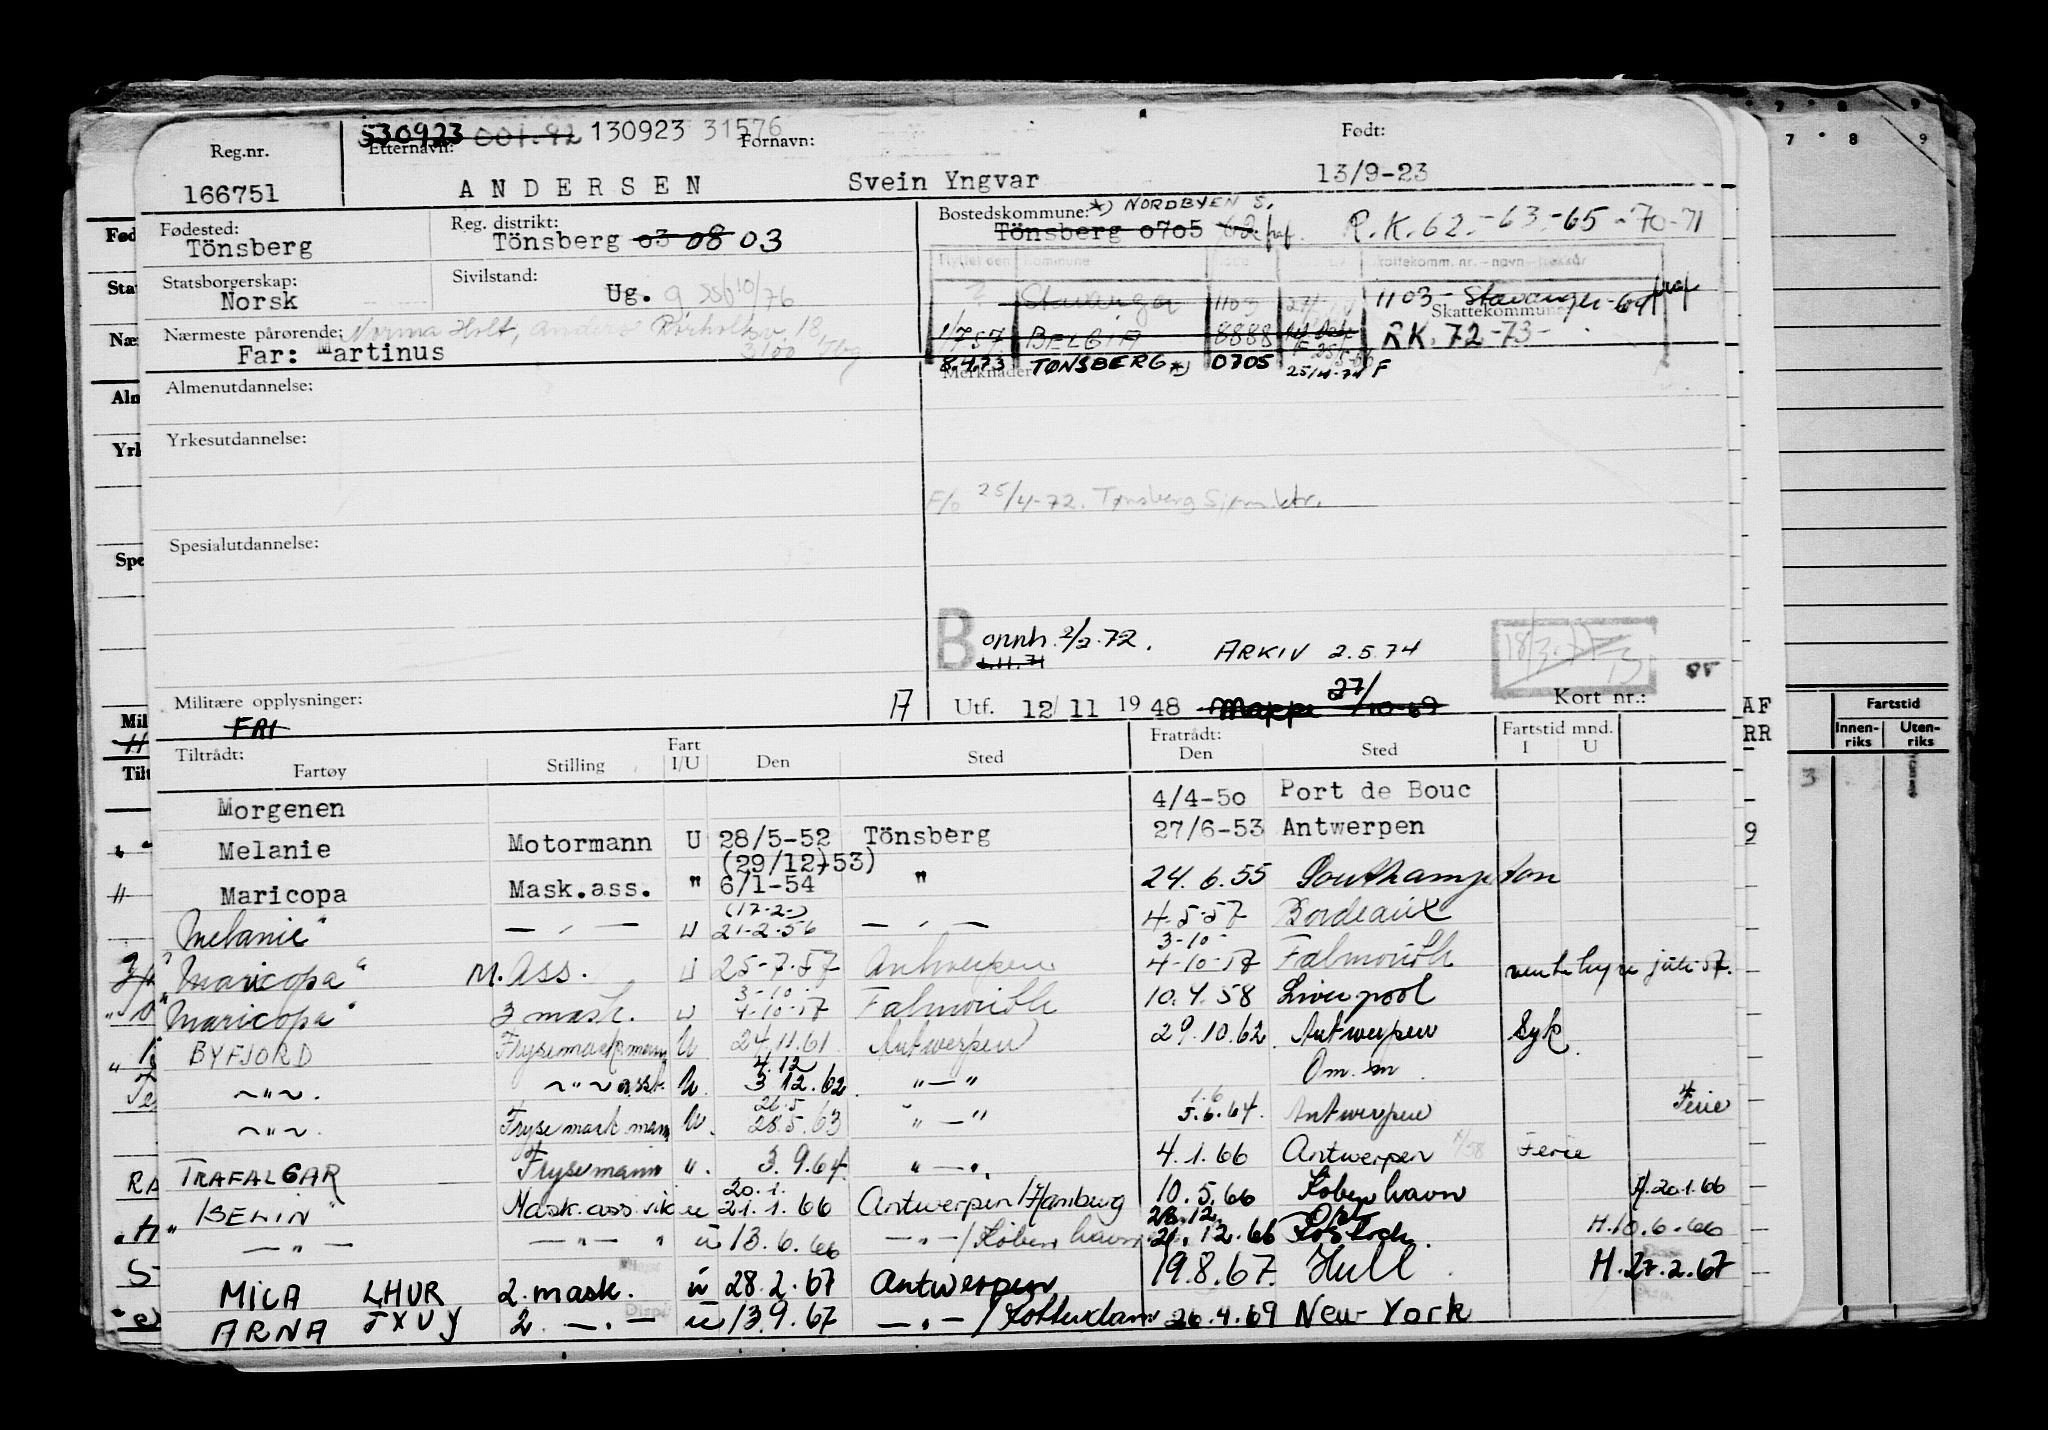 S30923 001.92 130923 31576
Reg.nr. Etternavn: Fornavn: Født:
166751 ANDERSEN Svein Yngvar 13/9-23
Fødested: Reg. distrikt: Bostedskommune: *) NORDBYEN 5.
Tönsberg Tönsberg 03 08 03 Tönsberg 0705 62 fraf. R.K. 62.-63-65-70-71
Statsborgerskap: Sivilstand: Flyttet den kommune skattekomm. nr. - navn - skatteår
Norsk Ug. g 10/76 Stavanger 1103 1103 - Stavanger - 69 fraf
Skattekommune
Nærmeste pårørende: Norma Holt, Anders 18, 3100 Tbg
Far: Martinus 1/7 57 BELGIA 8888 RK. 72-73-
8.4.73 TØNSBERG *) 0705 25/4-74 F
Almenutdannelse: Merknader
Yrkesutdannelse:
F/o 25/4-72. Tønsberg
Spesialutdannelse:
B onnh. 2/2.72. ARKIV 2.5.74
1.11.71
18/3.77 13 85
Militære opplysninger: A Utf. 12/11 1948 Mappe 27/10-69 Kort nr.:
FRI
Tiltrådt: Fart Fratrådt: Fartstid mnd.
Fartøy Stilling I/U Den Sted Den Sted I U
Morgenen 4/4-50 Port de Bouc
Melanie Motormann U 28/5-52 Tönsberg 27/6-53 Antwerpen
(29/12-53)
Maricopa Mask.ass. " 6/1-54 " 24.6.55 Southampton
(17-2-)
Melanie" — " — U 21-2-56 — " — 4-5-57 Bordeaux
3-10-
"Maricopa" M. Ass. U 25-7-57 Antwerpen 4-10-57 Falmouth juli 57.
3-10-
"Maricopa" 3 mask. U 4-10-57 Falmouth 10.4.58 Liverpool
BYFJORD Frysemask.mann U 24.11.61 Antwerpen 29.10.62 Antwerpen Syk.
4.12
~"~. ~"~ assk. U. 3 12.62. "—" Om. m
26.5 1.6
~"~. Frysemask.mann U. 28.5.63 "—" 5.6.64. Antwerpen Ferie
TRAFALGAR Frysemann ". 3.9.64 "—". 4.1.66 Antwerpen Ferie
20.1.
"ISELIN" Mask.ass. vik u 21.1.66 Antwerpen/Hamburg 10.5.66 København H.20.1.66
28.12.
— " — — " — " u 13.6.66 — " — / København 21.12.66 Rostock. H.10.6.66
MICA LHUR 2. mask. u 28.2.67 Antwerpen 19.8.67. Hull H.27.2.67
ARNA JXVY 2 — " — u 13.9.67 — " — / Rotterdam 26.4.69 New York
Fød
Stat
Nær
Alm
Yrk
Spe
Mil
Tilt
AF
RR
9
7 8 9
7 8 9
Fartstid
Innen-riks Uten-riks
3